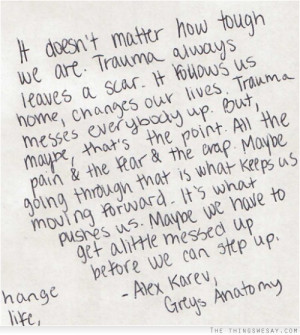 It doesn't matter how tough
we are. Trauma always
leaves a scar. It follows us
home, changes our lives. Trauma
messes everybody up. But,
maybe, that's the point. All the
pain & the fear & the crap. Maybe
going through that is what keeps us
moving forward. It's what
pushes us. Maybe we have to
get a little messed up
before we can step up.
- Alex Karev,
Greys Anatomy
hange
life,
THETHINGSWESAY.COM